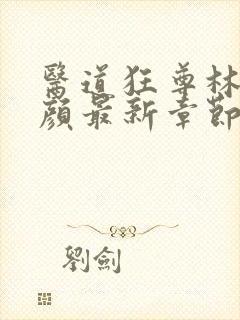 醫道狂尊林
顏最新章節
劉劍